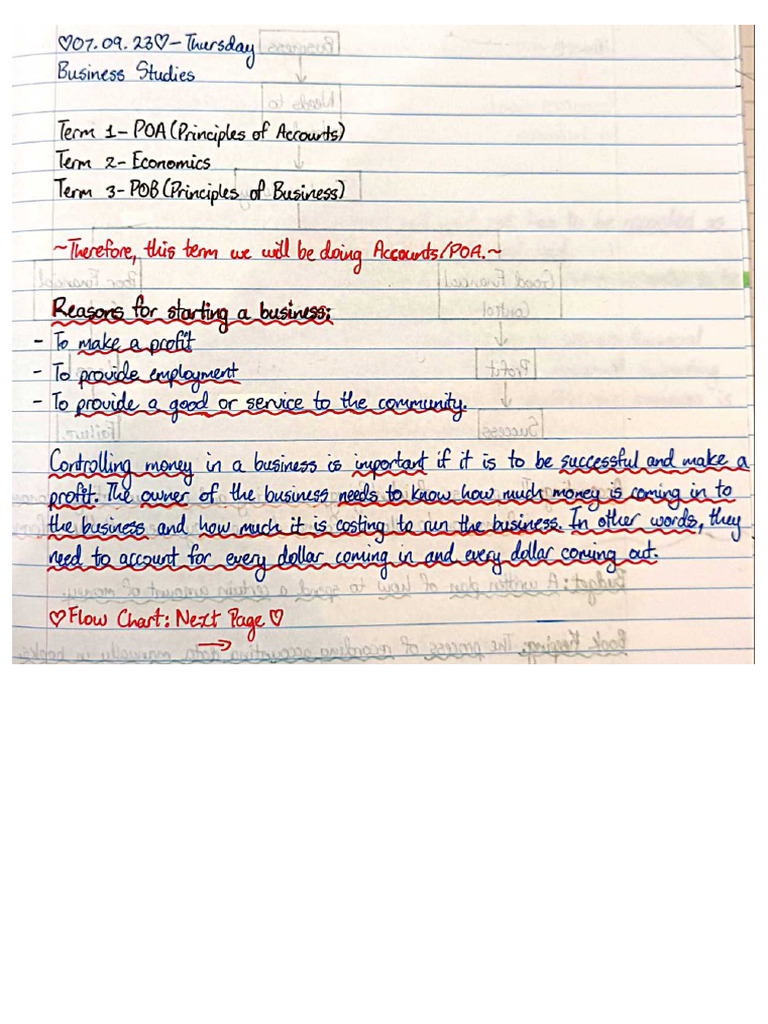 ♡07.09.23♡-Thursday
Business Studies
Term 1- POA (Principles of Accounts)
Term 2- Economics
Term 3- POB (Principles of Business)
~Therefore, this term we will be doing Accounts/POA.~
Reasons for starting a business:
- To make a profit
- To provide employment
- To provide a good or service to the community.
Controlling money in a business is important if it is to be successful and make a
profit. The owner of the business needs to know how much money is coming in to
the business and how much it is costing to run the business. In other words, they
need to account for every dollar coming in and every dollar coming out.
♡Flow Chart: Next Page♡
→